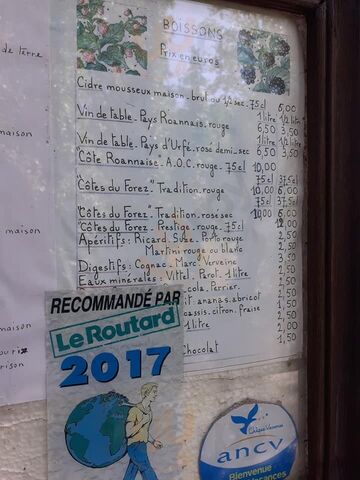 BOISSONS
Prix en euros
de terre
Cidre mousseux maison - brut ou 1/2 sec - 75cl 6,00
1 litre 1/2 litre
Vin de table - Pays Roannais - rouge 6,50 3,50
1 litre 1/2 litre
Vin de table - Pays d'Urfé - rosé demi-sec 6,50 3,50
"Côte Roannaise" A.O.C. rouge - 75cl 10,00
75cl 37,5cl
"Côtes du Forez" Tradition - rouge 10,00 6,00
75cl 37,5cl
"Côtes du Forez" Tradition - rosé sec 10,00 6,00
"Côtes du Forez" Prestige - rouge - 75cl 12,00
Apéritifs : Ricard - Suze - Porto rouge
Martini rouge ou blanc 2,50
Digestifs : Cognac - Marc - Verveine
Eaux minérales : Vittel - Parot - 1 litre
cola, Perrier
ananas, abricot
cassis, citron, fraise
1 litre
Chocolat 1,50
maison
maison
maison
RECOMMANDÉ PAR
Le Routard
2017
Chèque-Vacances
ancv
Bienvenue